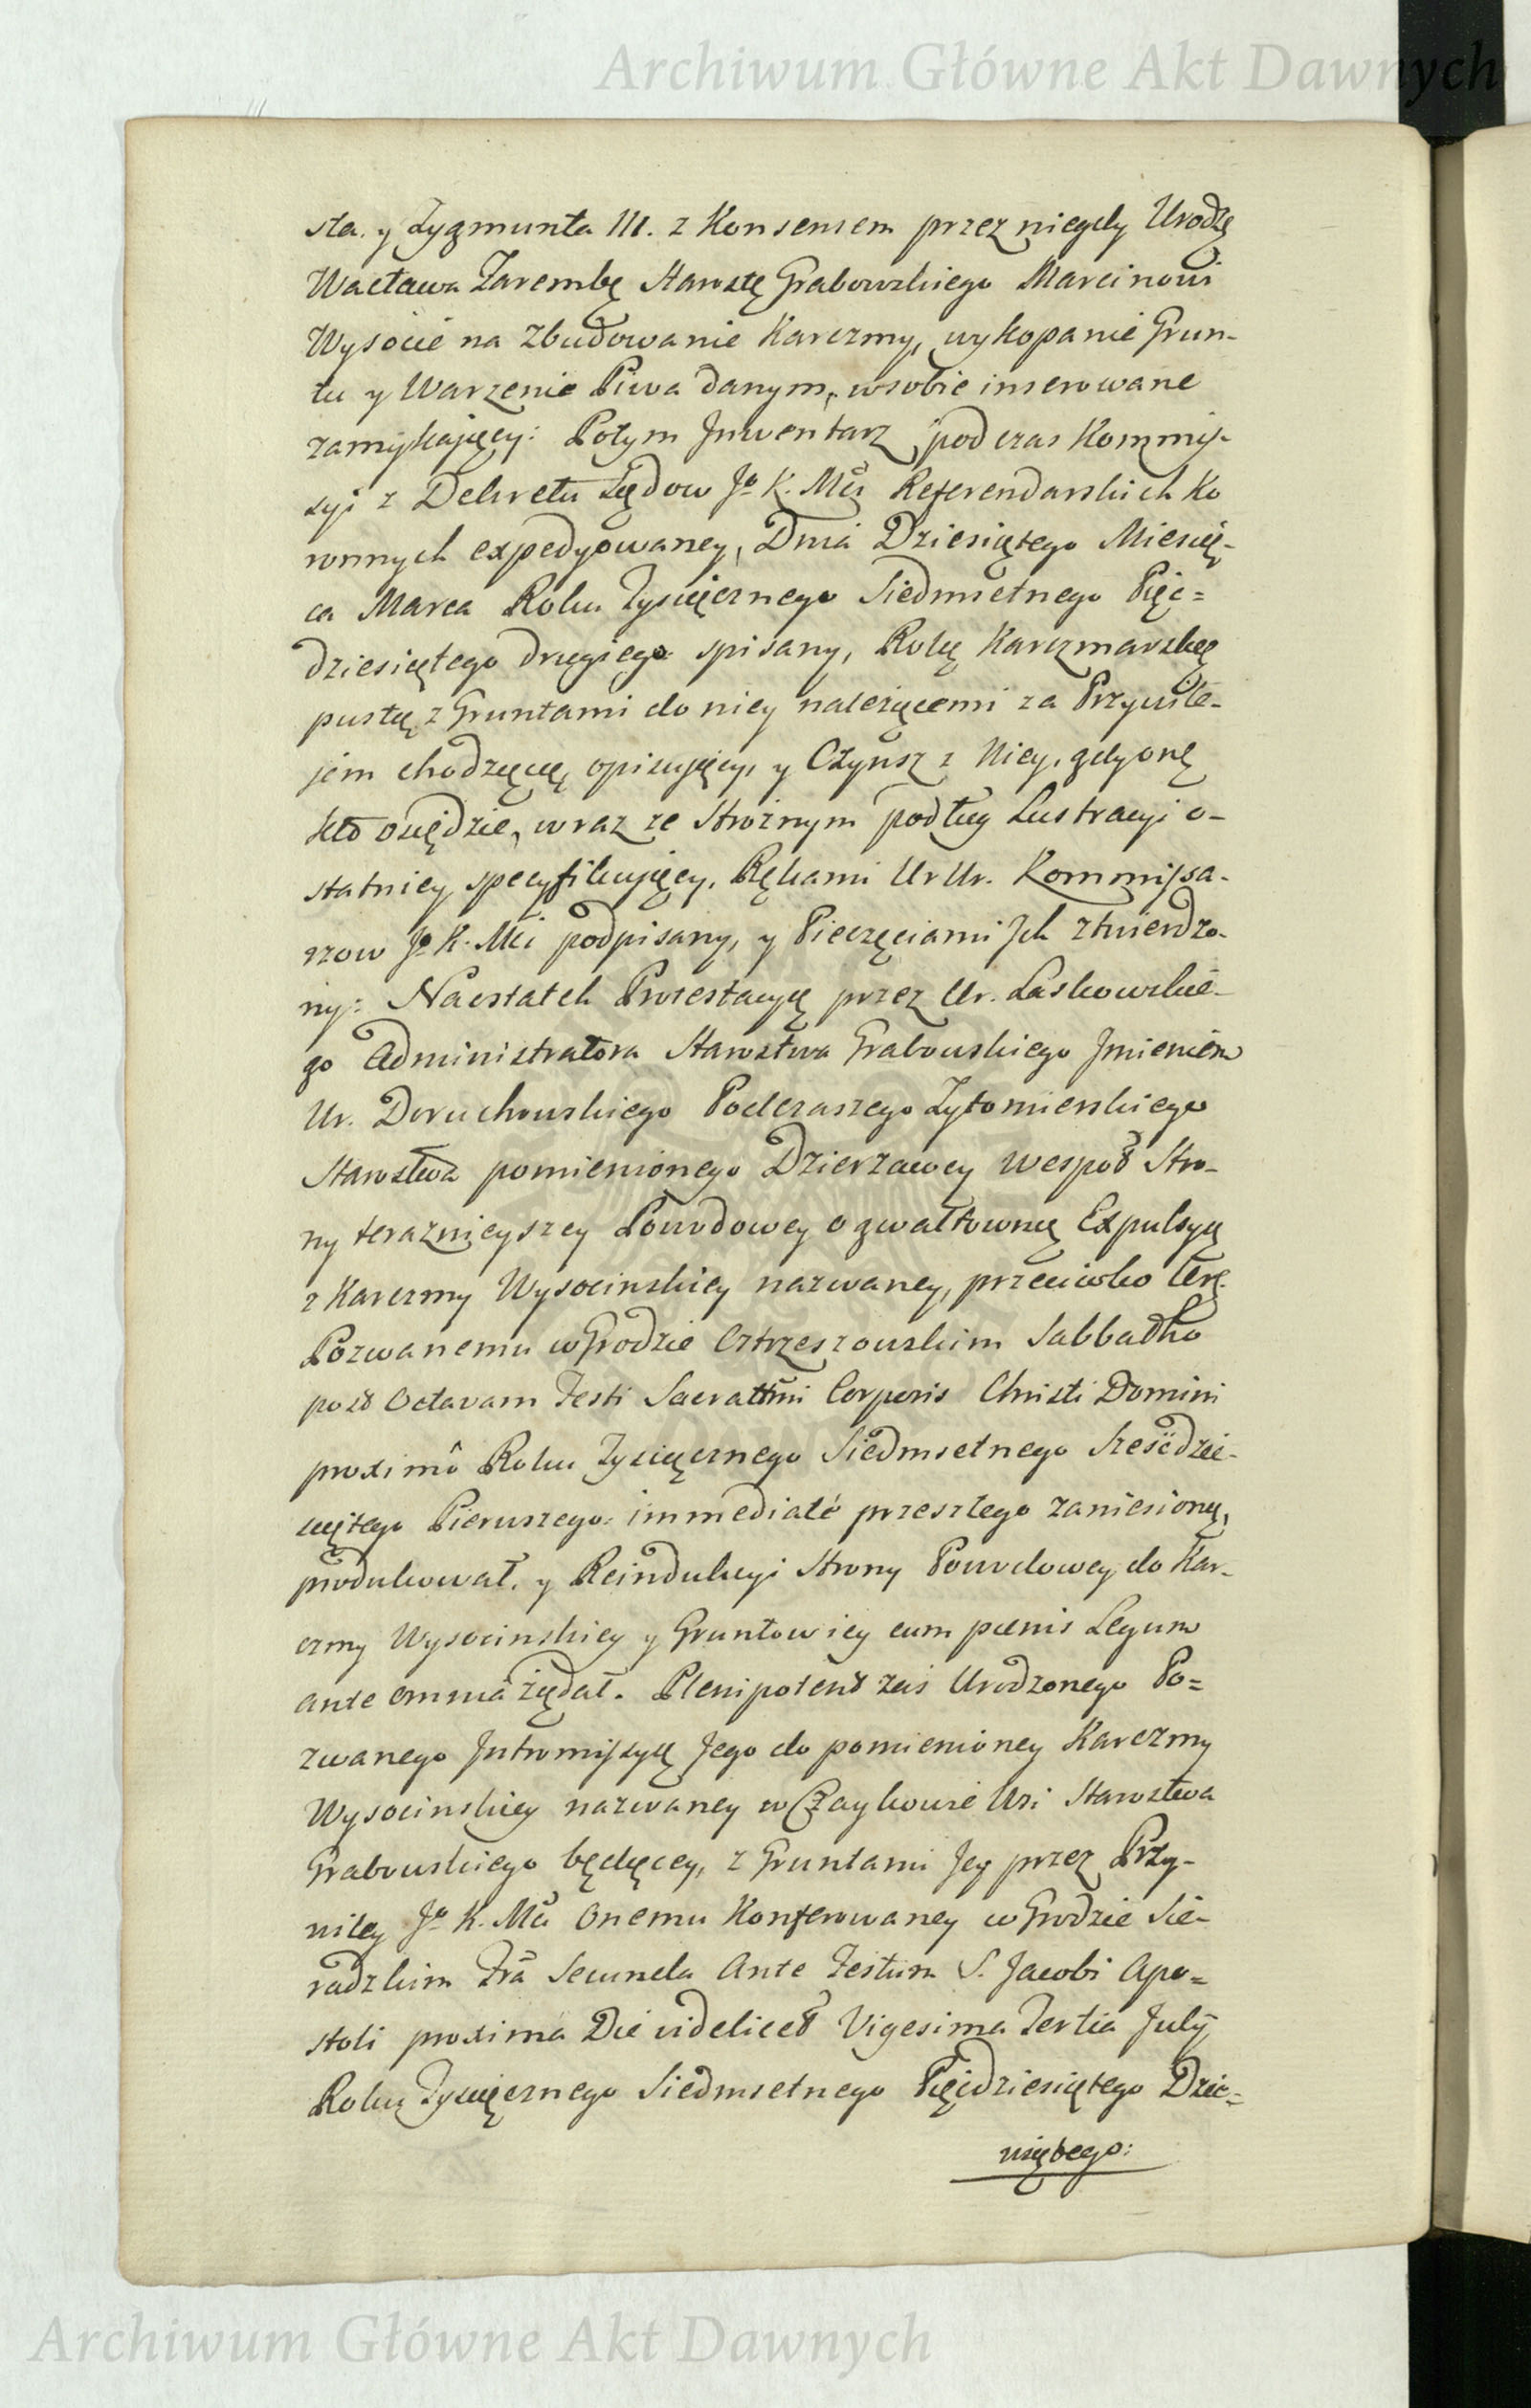 Archiwum Główne Akt Dawnych
sta. y Zygmunta III. z Konsensem przez niegdy Urodzę
Wacława Zarembę Starostę Grabowskiego Marcinowi
Wysocie na zbudowanie Karczmy, wykopanie Grun-
tu y Warzenie Piwa danym, w sobie inserowane
zamykaiący: Potym Jnwentarz podczas Kommis-
syi z Dekretu Sądow Jº K. Mci Referendarskich Ko
ronnych expedyowaney, Dnia Dziesiątego Miesią-
ca Marca Roku Tysiącznego Siedmsetnego Pięć=
dziesiątego drugiego spisany, Rolę Karczmarską
pustą z Gruntami do niey należącemi za Przywile-
jem chodzącą, opisujący, y Czynsz z Niey, gdy onę
kto osiędzie, wraz ze Strożnym podług Lustracyi o-
statniey specyfikujący, Rękami UrUr. Kommissa-
rzow Jº K. Mci podpisany, y Pieczęciami Jch ztwierdzo-
ny: Naostatek Protestacyą przez Ur. Laskowskie-
go Administratora Starostwa Grabowskiego Jmieniem
Ur. Doruchowskiego Podczaszego Zytomierskiego
Starostwa pomienionego Dzierzawcy wespoł Stro-
ny teraznieyszey Powodowey o gwałtowną Expulsyą
z Karczmy Wysocinskiey nazwaney, przeciwko terź.
Pozwanemu w Grodzie Ostrzeszowskim Sabbatho
post Octavam Festi Sacrattmi Corporis Christi Domini
proximô Roku Tysiącznego Siedmsetnego Sześćdzie-
siątego Pierwszego: immediatè przeszłego zaniesioną,
produkował, y Reindukcyi Strony Powodowey do Kar-
czmy Wysocinskiey y Gruntow iey cum pœnis Legum
ante omnia żądał. Plenipotent zaś Urodzonego Po=
zwanego Jntromissyą Jego do pomienioney Karczmy
Wysocinskiey nazwaney w Czaykowie Wsi Starostwa
Grabowskiego będącey, z Gruntami Jey przez Przy-
wiley Jº K. Mci Onemu Konferowaney w Grodzie Sie-
radzkim Fra Secunda Ante Festum S. Jacobi Apo=
stoli proxima Die videlicet Vigesima Tertia July
Roku Tysiącznego Siedmsetnego Pięćdziesiątego Dzie-
wiątego:
Archiwum Główne Akt Dawnych